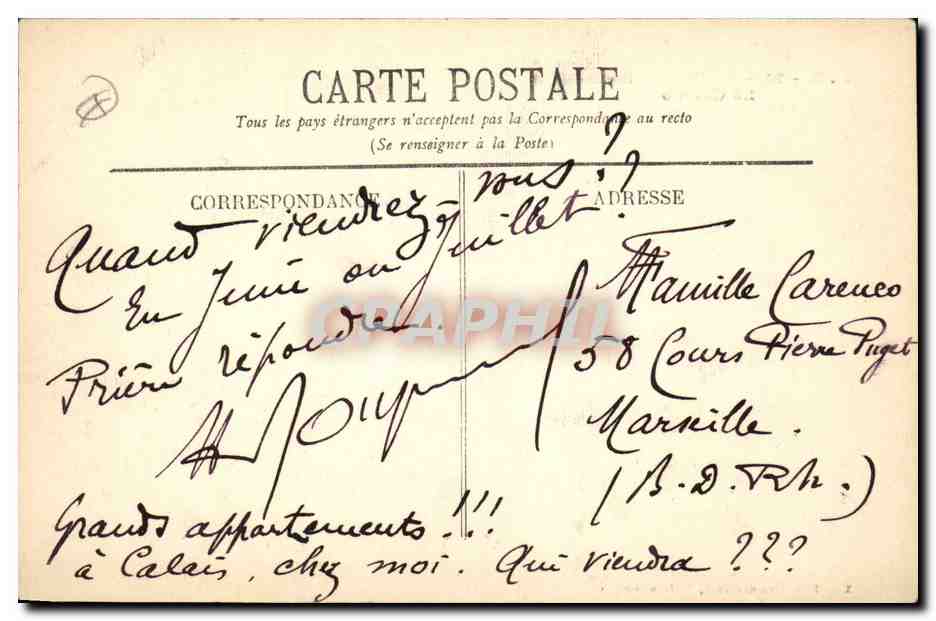 CARTE POSTALE
Tous les pays étrangers n'acceptent pas la Correspondance au recto
(Se renseigner à la Poste)
CORRESPONDANCE
ADRESSE
Quand viendrez vous ??
En Juin ou Juillet ?
Prière répondre.
Grands appartements !!!
à Calais, chez moi. Qui viendra ???
Famille Carenco
58 Cours Pierre Puget
Marseille.
(B.D.Rh.)
CPAPHIL